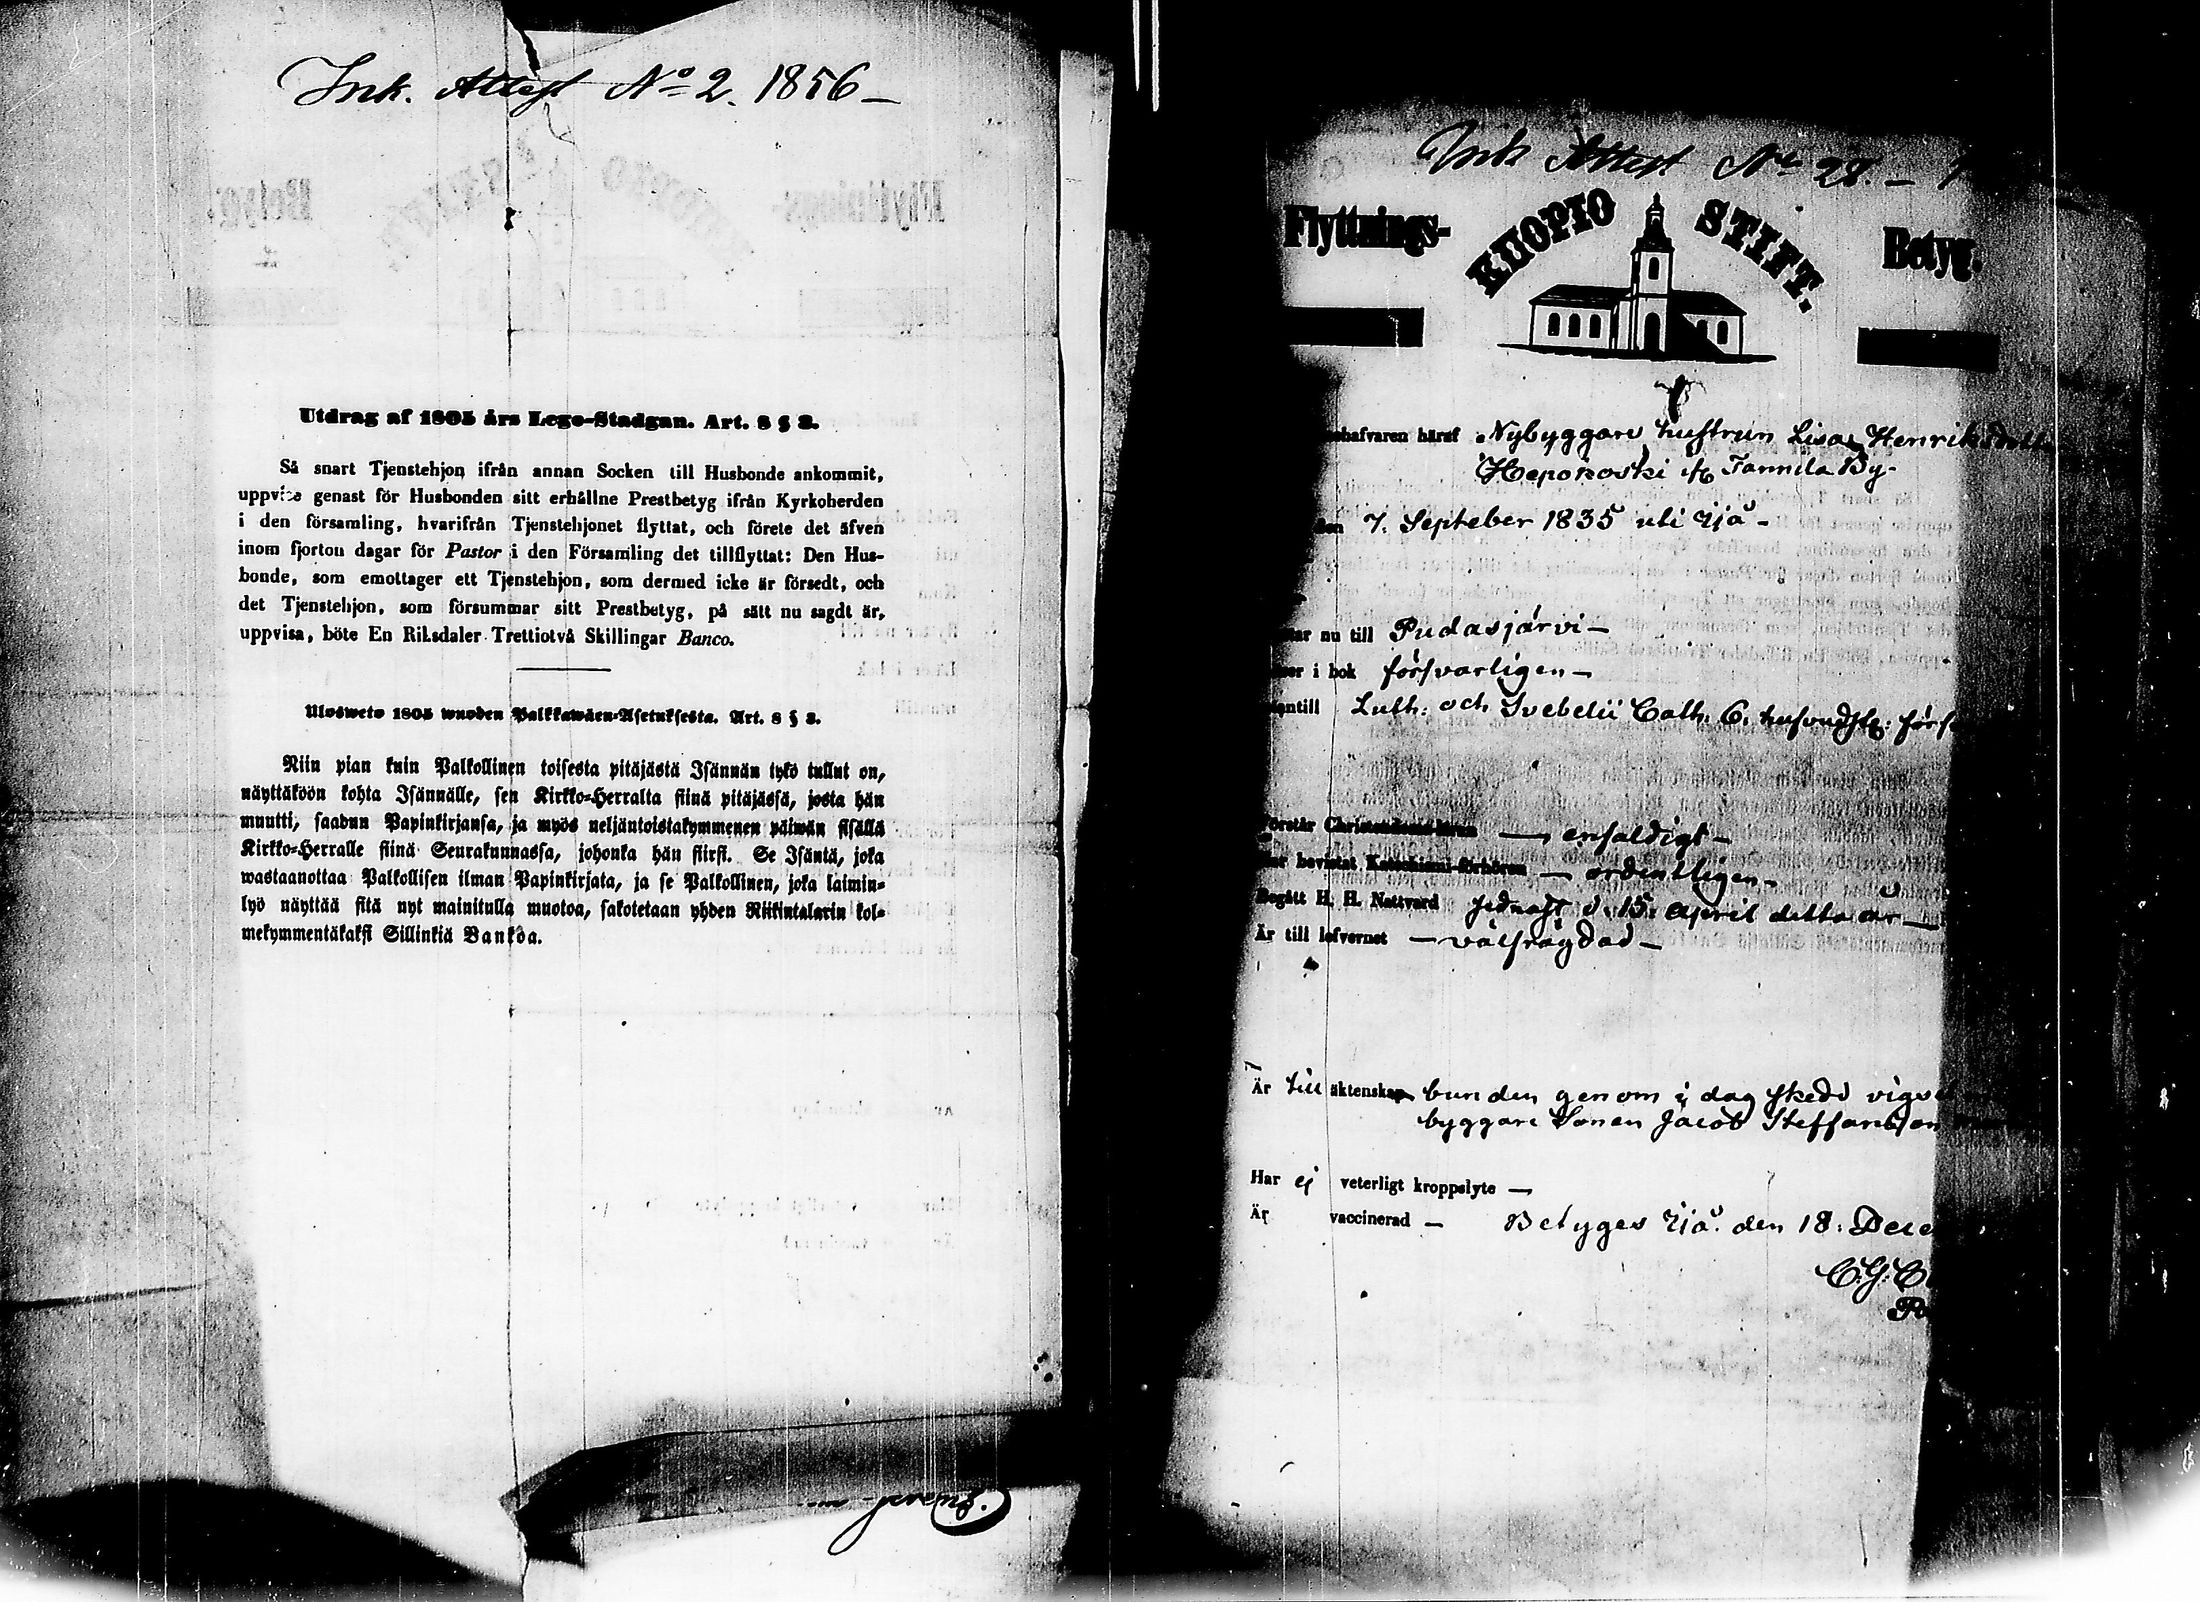 Ink. Attest No 2. 1856 –
Utdrag af 1805 års Lego-Stadgan. Art. 8 § 3.
Så snart Tjenstehjon ifrån annan Socken till Husbonde ankommit,
uppvise genast för Husbonden sitt erhållne Prestbetyg ifrån Kyrkoherden
i den församling, hvarifrån Tjenstehjonet flyttat, och förete det äfven
inom fjorton dagar för Pastor i den Församling det tillflyttat: Den Hus-
bonde, som emottager ett Tjenstehjon, som dermed icke är försedt, och
det Tjenstehjon, som försummar sitt Prestbetyg, på sätt nu sagdt är,
uppvisa, böte En Riksdaler Trettiotvå Skillingar Banco.
Ulosweto 1805 wuoden Palkkawäen-Asetuksesta. Art. 8 § 3.
Niin pian kuin Palkollinen toisesta pitäjästä Isännän tykö tullut on,
näyttäköön kohta Isännälle, sen Kirkko-Herralta siinä pitäjässä, josta hän
muutti, saadun Papinkirjansa, ja myös neljäntoistakymmenen päiwän sisällä
Kirkko-Herralle siinä Seurakunnassa, johonka hän siirsi. Se Isäntä, joka
wastaanottaa Palkollisen ilman Papinkirjata, ja se Palkollinen, joka laimin-
lyö näyttää sitä nyt mainitulla muotoa, sakotetaan yhden Riikintalarin kol-
mekymmentäkaksi Sillinkiä Bankoa.
Ink Attest No 28. –
Flyttnings- KUOPIO STIFT. Betyg.
hafvaren häraf Nybyggare hustrun Lisa Henriks
Heponoski fr Tannila By-
den 7. Septeber 1835 uti Ijå –
tar nu till Pudasjärvi –
ser i bok försvarligen –
antill Luth: och Svebelii Cath. 6. husvudst: förs
örstår Christendoms-läran – enfaldigt –
ar bevistat Katechismi-förhören – ordentligen –
Begått H. H. Nattvard sednast d. 15. April detta år –
Är till lefvernet – välfrägdad –
Är till äktenskap bunden genom i dag skedd vigs
byggare Sonen Jacob Steffansson
Har ej veterligt kroppslyte –
Är vaccinerad – Betyges Ijå. den 18. Dece
C. G. C
Pa